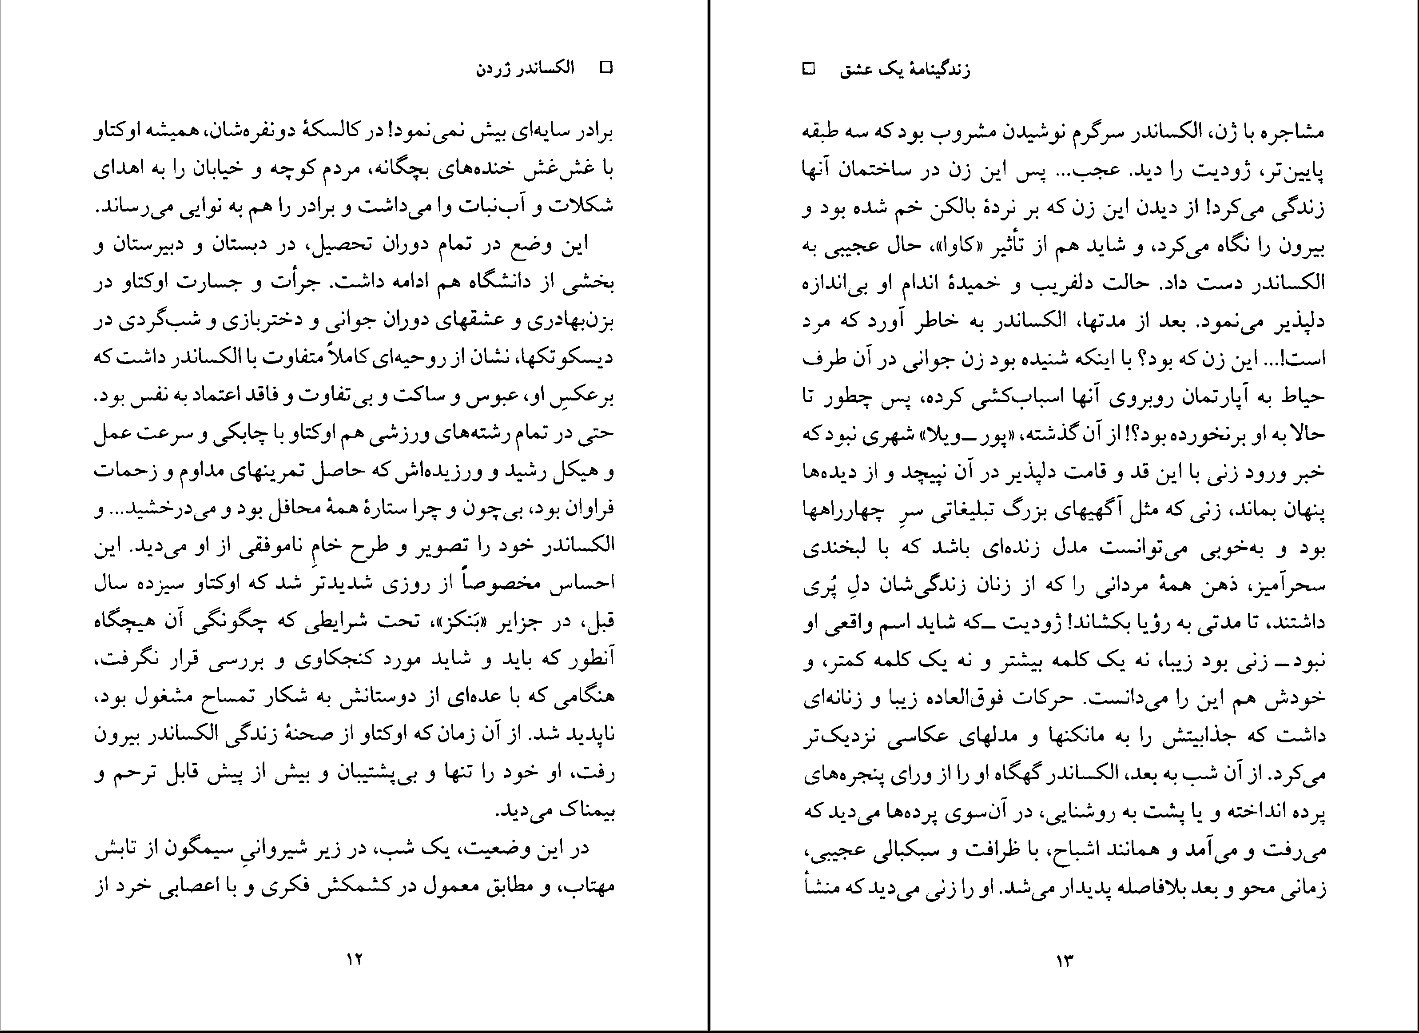 □ الکساندر ژردن
برادر سایه‌ای بیش نمی‌نمود! در کالسکهٔ دونفره‌شان، همیشه اوکتاو
با غش‌غش خنده‌های بچگانه، مردم کوچه و خیابان را به اهدای
شکلات و آب‌نبات وا می‌داشت و برادر را هم به نوایی می‌رساند.
این وضع در تمام دوران تحصیل، در دبستان و دبیرستان و
بخشی از دانشگاه هم ادامه داشت. جرأت و جسارت اوکتاو در
بزن‌بهادری و عشقهای دوران جوانی و دختربازی و شب‌گردی در
دیسکوتکها، نشان از روحیه‌ای کاملاً متفاوت با الکساندر داشت که
برعکسِ او، عبوس و ساکت و بی‌تفاوت و فاقد اعتماد به نفس بود.
حتی در تمام رشته‌های ورزشی هم اوکتاو با چابکی و سرعت عمل
و هیکل رشید و ورزیده‌اش که حاصل تمرینهای مداوم و زحمات
فراوان بود، بی‌چون و چرا ستارهٔ همهٔ محافل بود و می‌درخشید... و
الکساندر خود را تصویر و طرح خامِ ناموفقی از او می‌دید. این
احساس مخصوصاً از روزی شدیدتر شد که اوکتاو سیزده سال
قبل، در جزایر «بَنکز»، تحت شرایطی که چگونگی آن هیچگاه
آنطور که باید و شاید مورد کنجکاوی و بررسی قرار نگرفت،
هنگامی که با عده‌ای از دوستانش به شکار تمساح مشغول بود،
ناپدید شد. از آن زمان که اوکتاو از صحنهٔ زندگی الکساندر بیرون
رفت، او خود را تنها و بی‌پشتیبان و بیش از پیش قابل ترحم و
بیمناک می‌دید.
در این وضعیت، یک شب، در زیر شیروانیِ سیمگون از تابش
مهتاب، و مطابق معمول در کشمکش فکری و با اعصابی خرد از
۱۲
زندگینامهٔ یک عشق □
مشاجره با ژن، الکساندر سرگرم نوشیدن مشروب بود که سه طبقه
پایین‌تر، ژودیت را دید. عجب... پس این زن در ساختمان آنها
زندگی می‌کرد! از دیدن این زن که بر نردهٔ بالکن خم شده بود و
بیرون را نگاه می‌کرد، و شاید هم از تأثیر «کاوا»، حال عجیبی به
الکساندر دست داد. حالت دلفریب و خمیدهٔ اندام او بی‌اندازه
دلپذیر می‌نمود. بعد از مدتها، الکساندر به خاطر آورد که مرد
است!... این زن که بود؟ با اینکه شنیده بود زن جوانی در آن طرف
حیاط به آپارتمان روبروی آنها اسباب‌کشی کرده، پس چطور تا
حالا به او برنخورده بود؟! از آن گذشته، «پور‌ـ‌ویلا» شهری نبود که
خبر ورود زنی با این قد و قامت دلپذیر در آن نپیچد و از دیده‌ها
پنهان بماند، زنی که مثل آگهیهای بزرگ تبلیغاتی سرِ چهارراهها
بود و به‌خوبی می‌توانست مدل زنده‌ای باشد که با لبخندی
سحرآمیز، ذهن همهٔ مردانی را که از زنان زندگی‌شان دلِ پُری
داشتند، تا مدتی به رؤیا بکشاند! ژودیت ـ‌که شاید اسم واقعی او
نبود‌ـ زنی بود زیبا، نه یک کلمه بیشتر و نه یک کلمه کمتر، و
خودش هم این را می‌دانست. حرکات فوق‌العاده زیبا و زنانه‌ای
داشت که جذابیتش را به مانکنها و مدلهای عکاسی نزدیک‌تر
می‌کرد. از آن شب به بعد، الکساندر گهگاه او را از ورای پنجره‌های
پرده انداخته و یا پشت به روشنایی، در آن‌سوی پرده‌ها می‌دید که
می‌رفت و می‌آمد و همانند اشباح، با ظرافت و سبکبالی عجیبی،
زمانی محو و بعد بلافاصله پدیدار می‌شد. او را زنی می‌دید که منشأ
۱۳